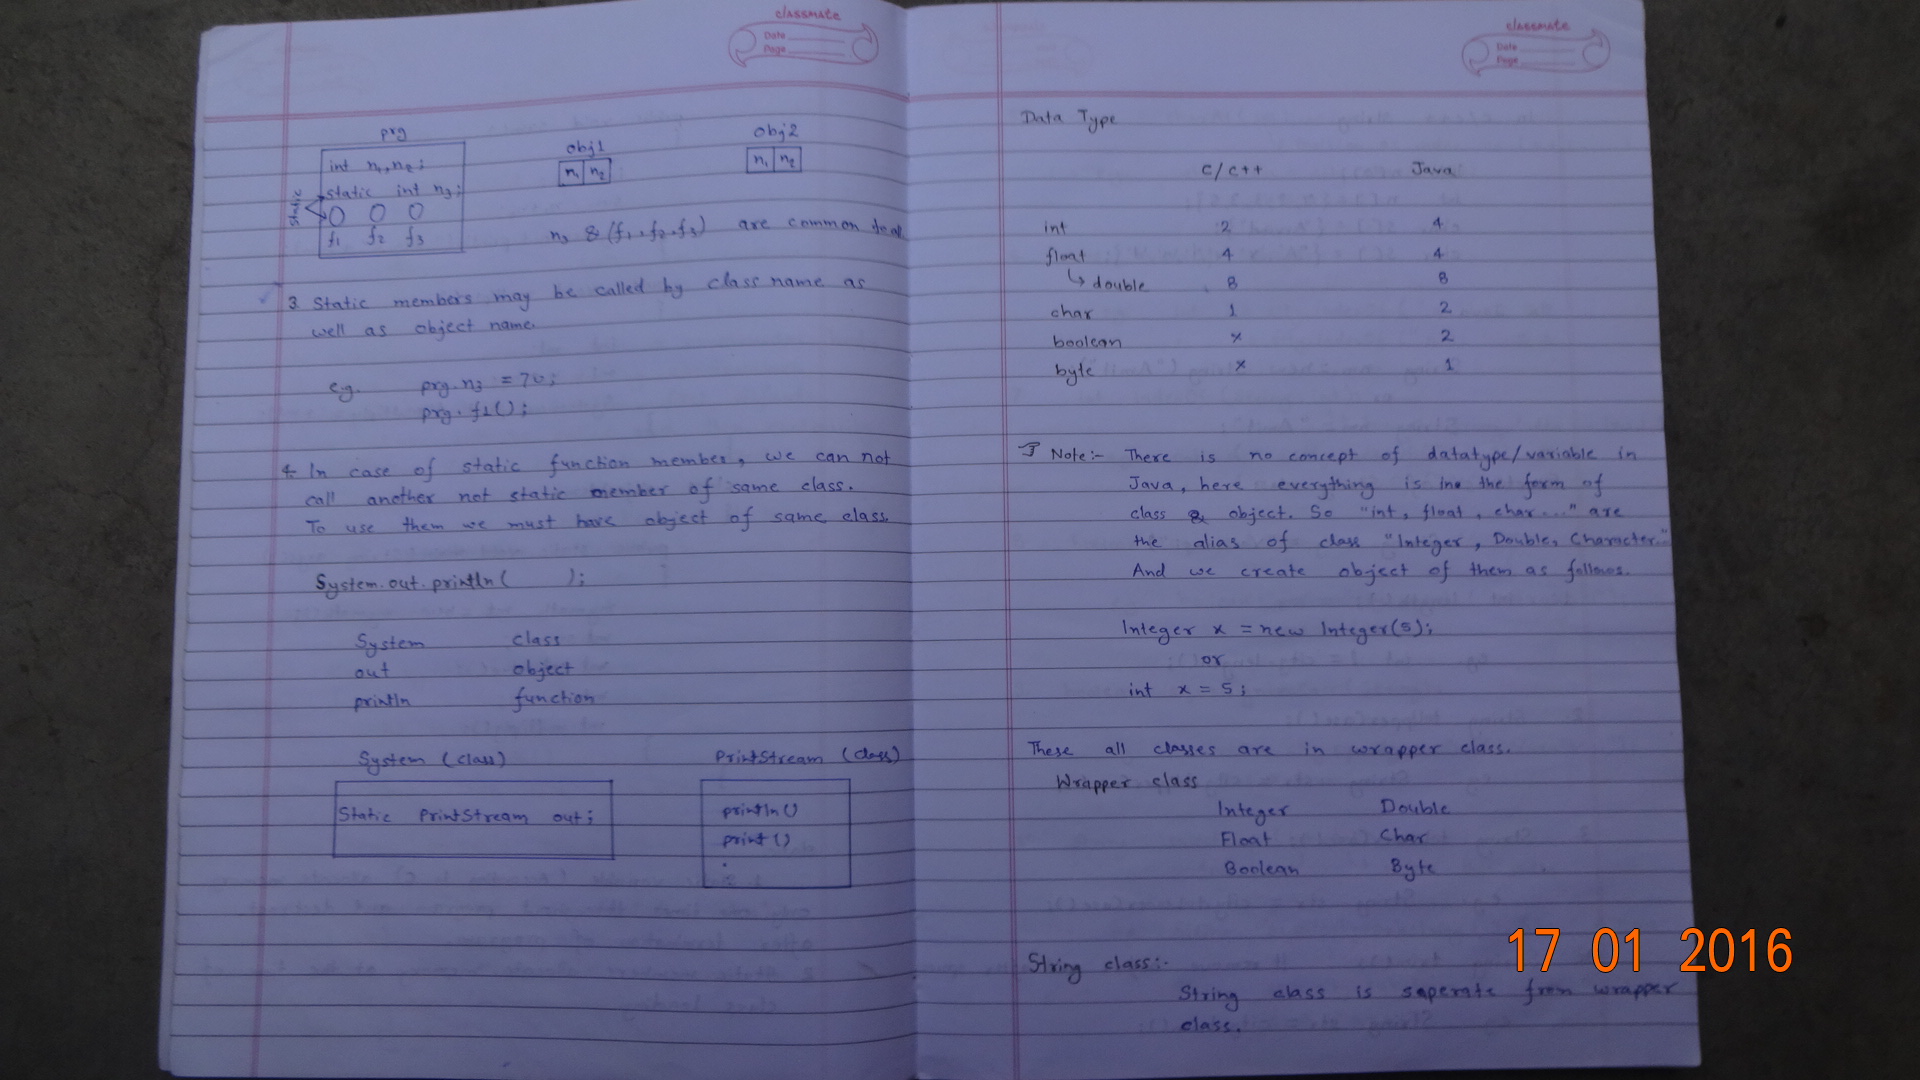 classmate
Date
Page
prg
int n1, n2;
static int n3;
static
f1 f2 f3
obj1
n1 n2
obj2
n1 n2
n3 & (f1, f2, f3) are common to all
3 Static members may be called by class name as
well as object name.
e.g. prg.n3 = 70;
prg.f1();
4. In case of static function member, we can not
call another not static member of same class.
To use them we must have object of same class.
System.out.println( );
System class
out object
println function
System (class)
Static PrintStream out;
PrintStream (class)
println()
print()
classmate
Date
Page
Data Type
c/c++ Java
int 2 4
float 4 4
↳ double 8 8
char 1 2
boolean x 2
byte x 1
Note:- There is no concept of datatype/variable in
Java, here everything is in the form of
class & object. So "int, float, char..." are
the alias of class "Integer, Double, Character.."
And we create object of them as follows.
Integer x = new Integer(5);
or
int x = 5;
These all classes are in wrapper class.
Wrapper class
Integer Double
Float Char
Boolean Byte
String class:-
String class is saperate from wrapper
class.
17 01 2016